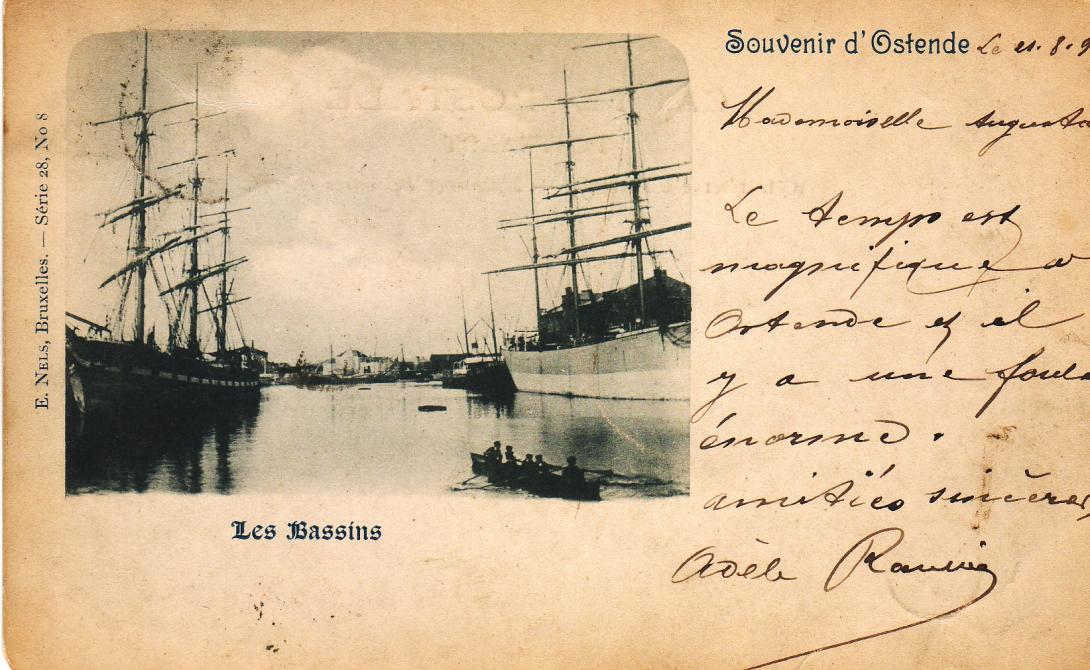 Souvenir d'Ostende Le 21.8.9
Mademoiselle Augusta
Le temps est
magnifique a
Ostende et il
y a une foule
énorme.
amitiés sincères
Adèle
E. NELS, Bruxelles. — Série 28, No 8
Les Bassins